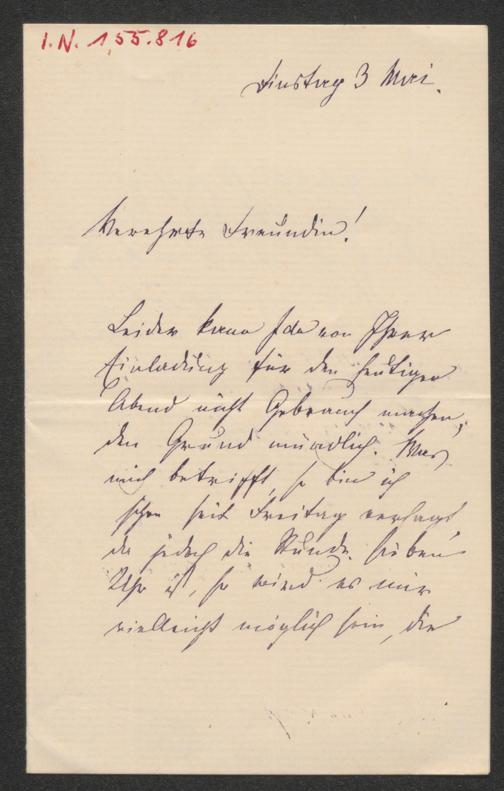 I.N. 155.816
Dinstag 3 Mai.
Verehrte Freundin!
Leider kann Ida von Ihrer
Einladung für den heutigen
Abend nicht Gebrauch machen,
den Grund mündlich. Was
mich betrifft, so bin ich
schon seit Freitag versagt
da jedoch die Stunde sieben
Uhr ist, so wird es mir
vielleicht möglich sein, die